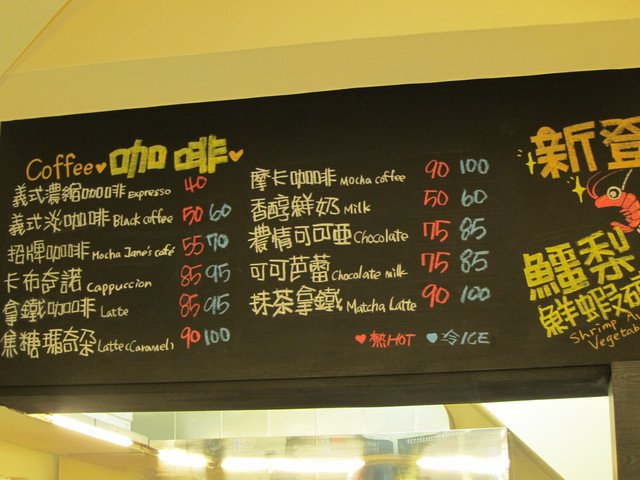 Coffee 咖啡
義式濃縮咖啡 Expresso 40
義式淡咖啡 Black coffee 50 60
招牌咖啡 Mocha Jane's café 55 70
卡布奇諾 Cappuccion 85 95
拿鐵咖啡 Latte 85 95
焦糖瑪奇朵 Latte (Caramel) 90 100
摩卡咖啡 Mocha coffee 90 100
香醇鮮奶 Milk 50 60
濃情可可亞 Chocolate 75 85
可可芭蕾 Chocolate milk 75 85
抹茶拿鐵 Matcha Latte 90 100
熱HOT 冷ICE
新登
鱷梨
鮮蝦
Shrimp
Vegeta